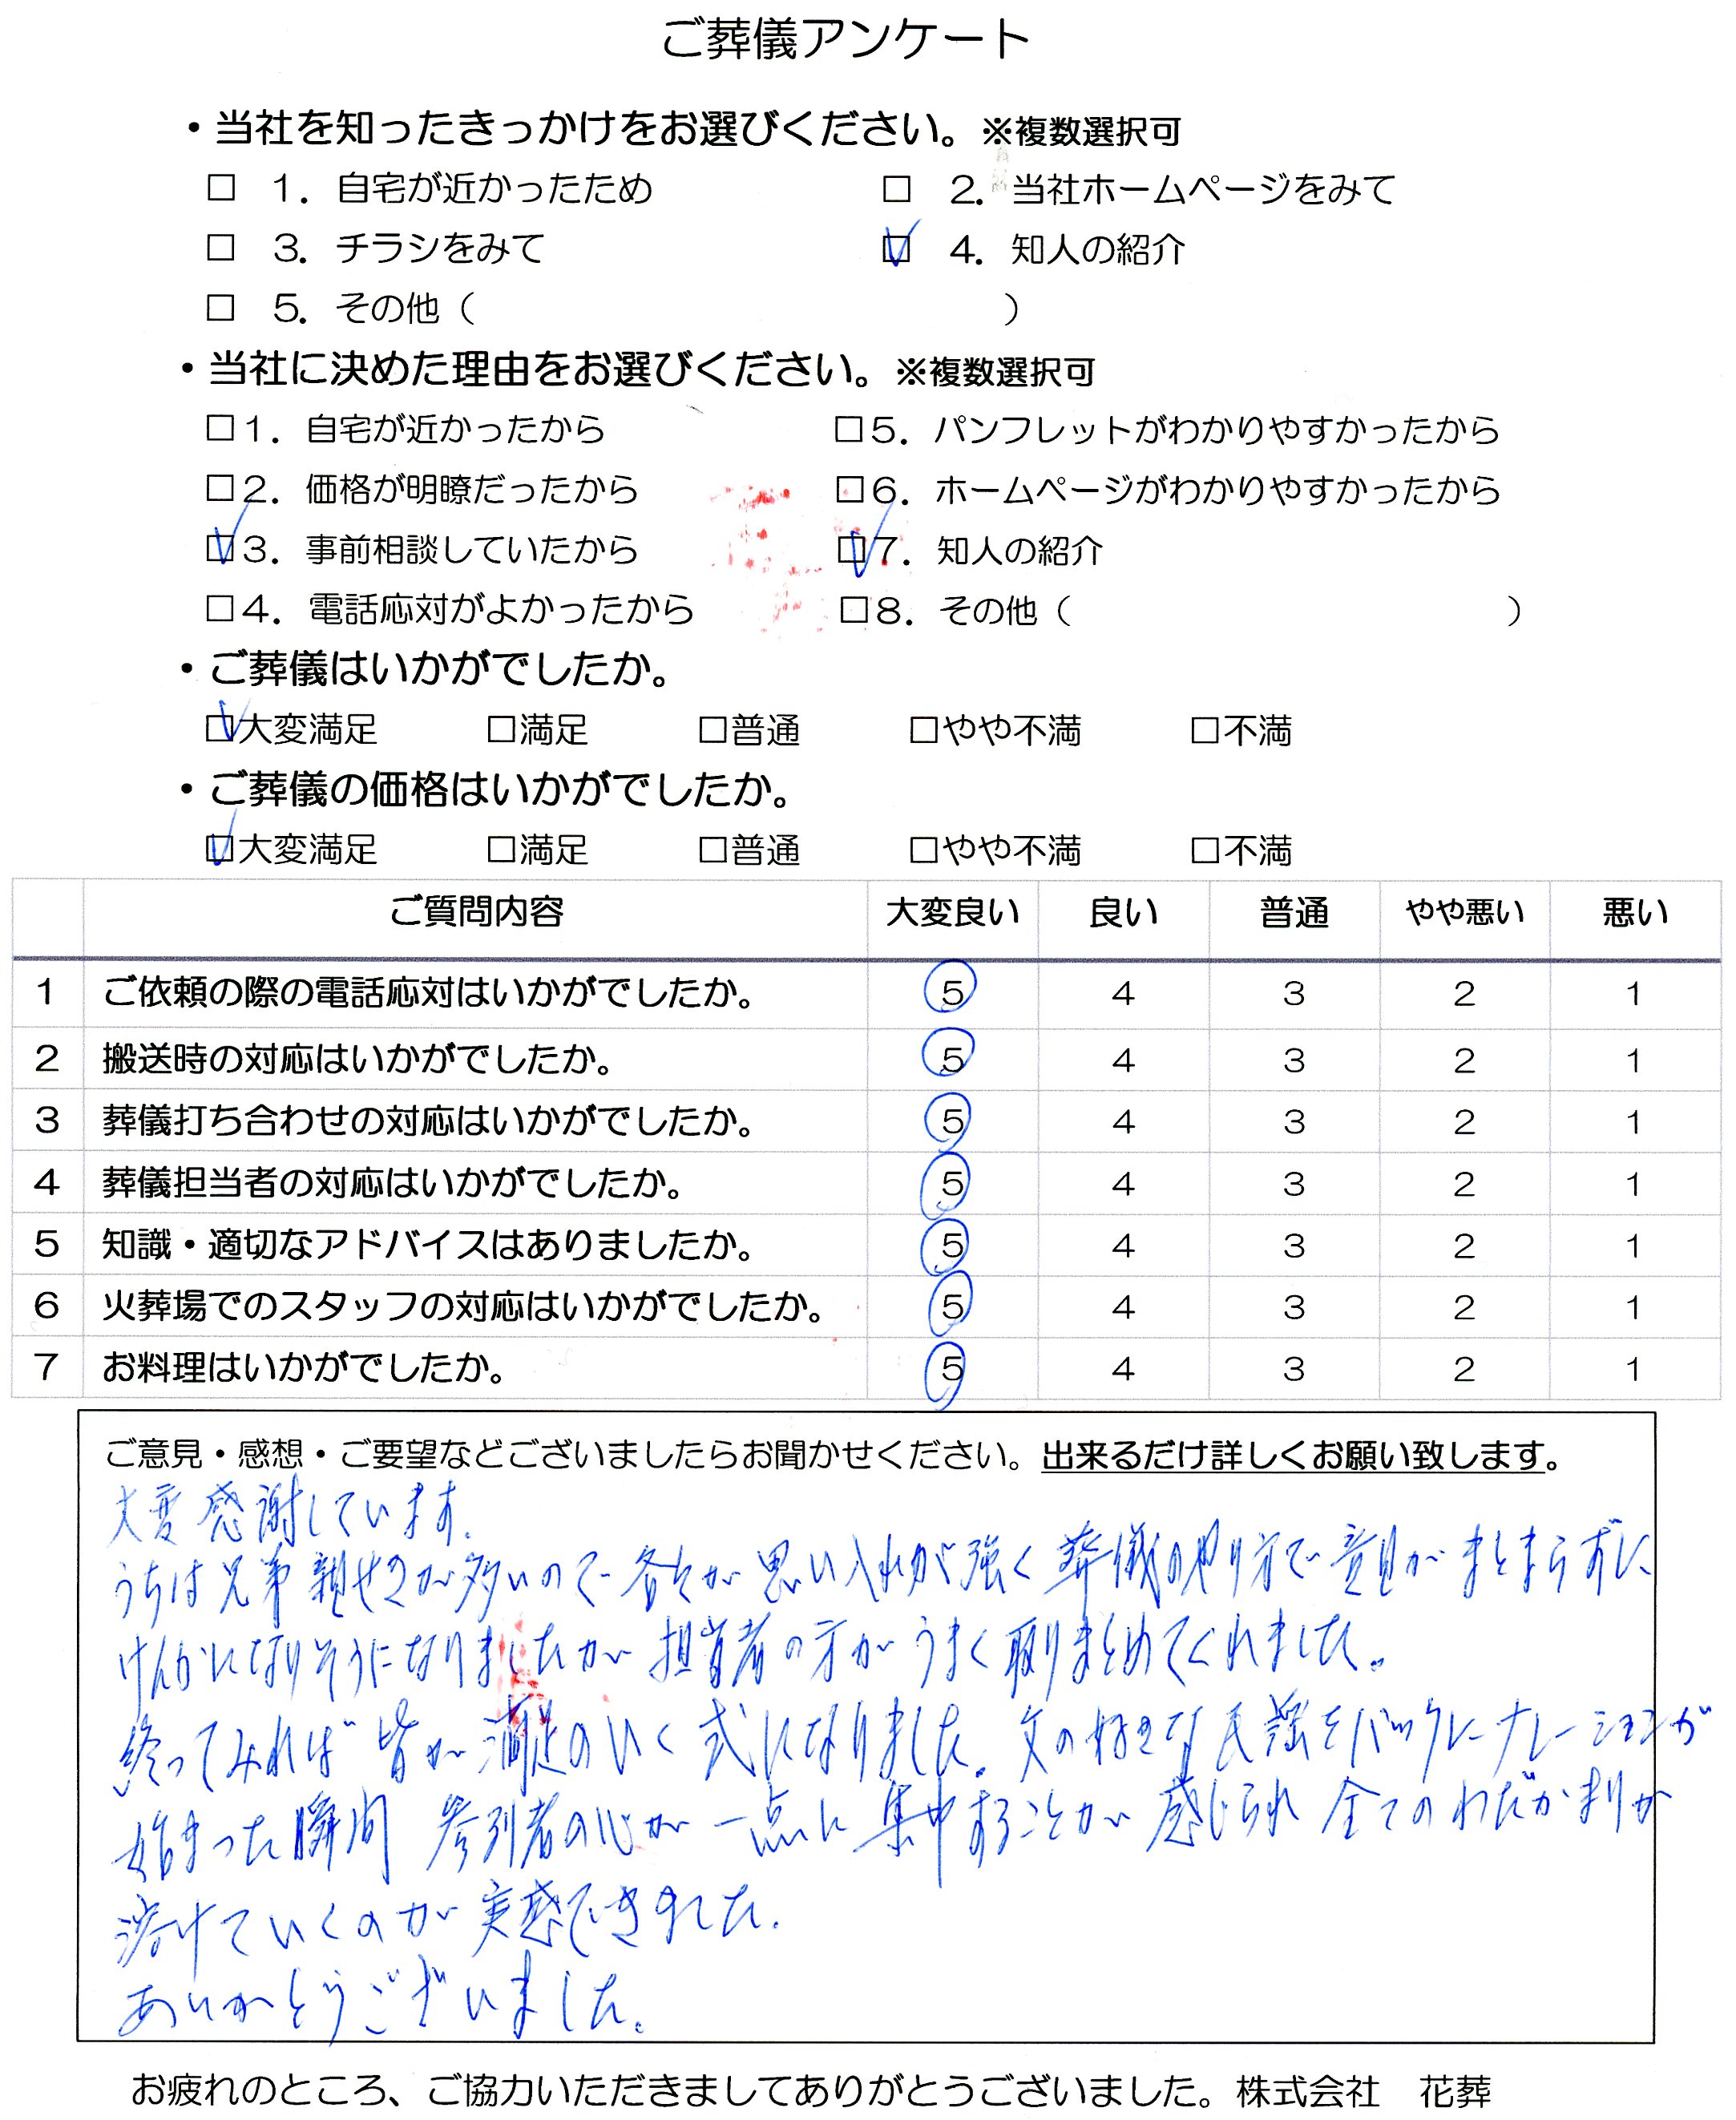 ご葬儀アンケート
・当社を知ったきっかけをお選びください。※複数選択可
□ 1. 自宅が近かったため □ 2. 当社ホームページをみて
□ 3. チラシをみて ☑ 4. 知人の紹介
□ 5. その他（ ）
・当社に決めた理由をお選びください。※複数選択可
□1. 自宅が近かったから □5. パンフレットがわかりやすかったから
□2. 価格が明瞭だったから □6. ホームページがわかりやすかったから
☑3. 事前相談していたから ☑7. 知人の紹介
□4. 電話応対がよかったから □8. その他（ ）
・ご葬儀はいかがでしたか。
☑大変満足 □満足 □普通 □やや不満 □不満
・ご葬儀の価格はいかがでしたか。
☑大変満足 □満足 □普通 □やや不満 □不満
ご質問内容 大変良い 良い 普通 やや悪い 悪い
1 ご依頼の際の電話応対はいかがでしたか。 5 4 3 2 1
2 搬送時の対応はいかがでしたか。 5 4 3 2 1
3 葬儀打ち合わせの対応はいかがでしたか。 5 4 3 2 1
4 葬儀担当者の対応はいかがでしたか。 5 4 3 2 1
5 知識・適切なアドバイスはありましたか。 5 4 3 2 1
6 火葬場でのスタッフの対応はいかがでしたか。 5 4 3 2 1
7 お料理はいかがでしたか。 5 4 3 2 1
ご意見・感想・ご要望などございましたらお聞かせください。出来るだけ詳しくお願い致します。
大変感謝しています。
うちは兄弟親せきが多いので各々が思い入れが強く葬儀のやり方で意見がまとまらずに
けんかになりそうになりましたが担当者の方がうまく取りまとめてくれました。
終ってみれば皆が満足のいく式になりました。父の好きな民謡をバックにナレーションが
始まった瞬間 参列者の心が一点に集中することが感じられ 全てのわだかまりが
溶けていくのが実感できました。
ありがとうございました。
お疲れのところ、ご協力いただきましてありがとうございました。株式会社 花葬